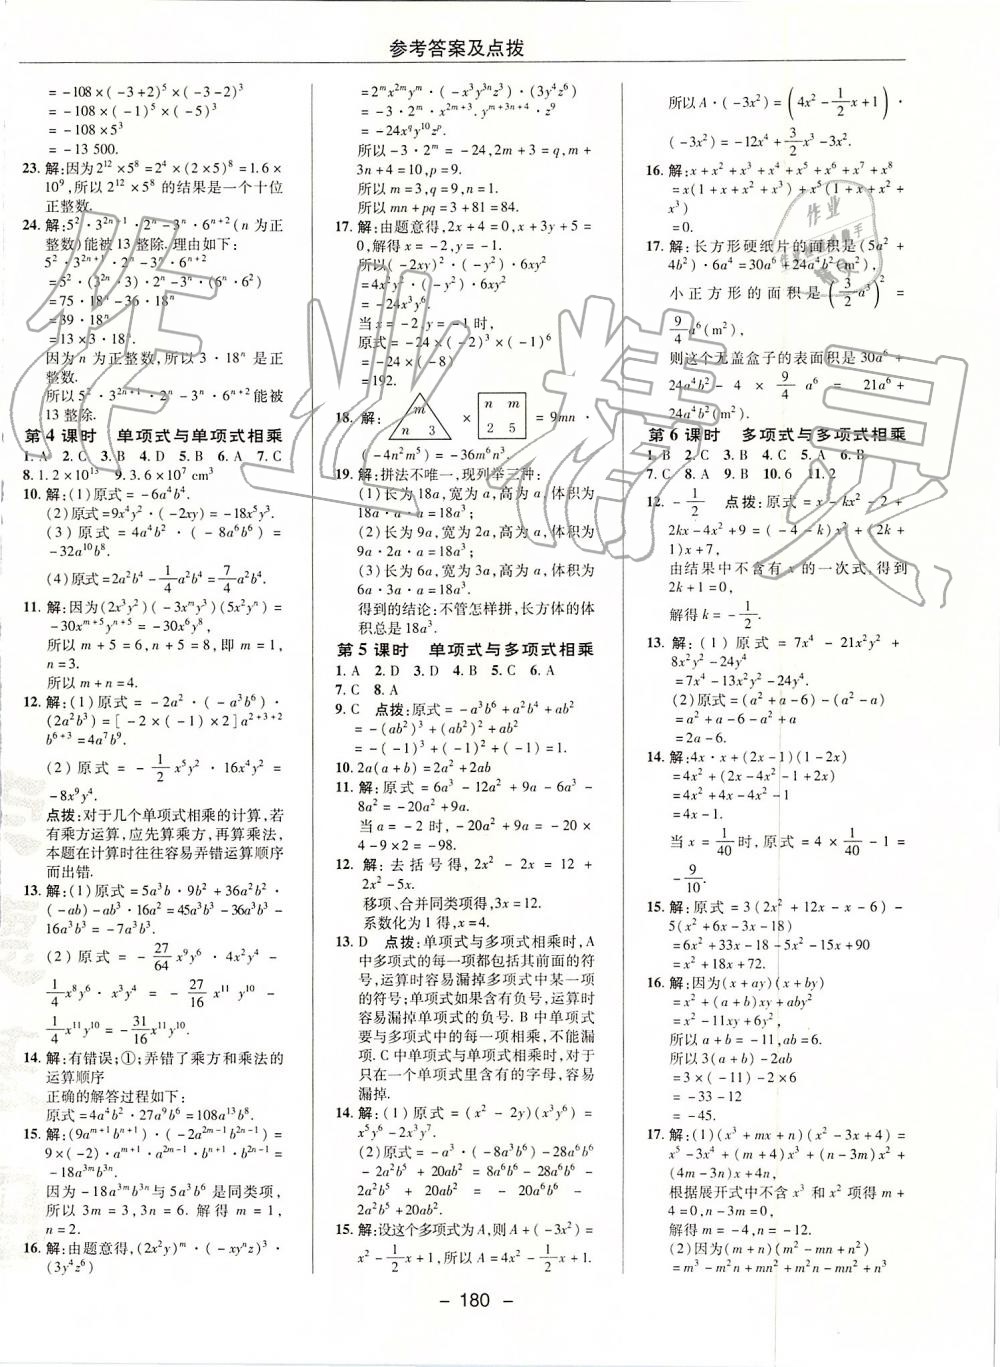 参考答案及点拨
= -108×(-3+2)⁵×(-3-2)³
= -108×(-1)⁵×(-5)³
= -108×5³
= -13 500.
23. 解:因为2¹²×5⁸=2⁴×(2×5)⁸=1.6×
10⁹,所以2¹²×5⁸的结果是一个十位
正整数.
24. 解:5²·3²ⁿ⁺¹·2ⁿ-3ⁿ·6ⁿ⁺²(n为正
整数)能被13整除.理由如下:
5²·3²ⁿ⁺¹·2ⁿ-3ⁿ·6ⁿ⁺²
=5²·(3²ⁿ·3)·2ⁿ-3ⁿ·(6ⁿ·6²)
=75·18ⁿ-36·18ⁿ
=39·18ⁿ
=13×3·18ⁿ.
因为n为正整数,所以3·18ⁿ是正
整数.
所以5²·3²ⁿ⁺¹·2ⁿ-3ⁿ·6ⁿ⁺²能被
13整除.
第4课时 单项式与单项式相乘
1. A 2. C 3. B 4. D 5. B 6. A 7. C
8. 1.2×10¹³ 9. 3.6×10⁷ cm³
10. 解:(1)原式=-6a⁴b⁴.
(2)原式=9x⁴y²·(-2xy)=-18x⁵y³.
(3)原式=4a⁴b²·(-8a⁶b⁶)=
-32a¹⁰b⁸.
(4)原式=2a²b⁴-1/4a²b⁴=7/4a²b⁴.
11. 解:因为(2x³y²)(-3xᵐy³)(5x²yⁿ)=
-30xᵐ⁺⁵yⁿ⁺⁵=-30x⁶y⁸,
所以m+5=6,n+5=8,即m=1,
n=3.
所以m+n=4.
12. 解:(1)原式=-2a²·(-a³b⁶)·
(2a²b³)=[-2×(-1)×2]a²⁺³⁺²
b⁶⁺³=4a⁷b⁹.
(2)原式=-1/2x⁵y²·16x⁴y²=
-8x⁹y⁴.
点拨:对于几个单项式相乘的计算,若
有乘方运算,应先算乘方,再算乘法,
本题在计算时往往容易弄错运算顺序
而出错.
13. 解:(1)原式=5a³b·9b²+36a²b²·
(-ab)-ab³·16a²=45a³b³-36a³b³-
16a³b³=-7a³b³.
(2)原式=-27/64x⁹y⁶·4x²y⁴-
1/4x⁸y⁶·x³y⁴=-27/16x¹¹y¹⁰-
1/4x¹¹y¹⁰=-31/16x¹¹y¹⁰.
14. 解:有错误;①;弄错了乘方和乘法的
运算顺序
正确的解答过程如下:
原式=4a⁴b²·27a⁹b⁶=108a¹³b⁸.
15. 解:(9aᵐ⁺¹bⁿ⁺¹)·(-2a²ᵐ⁻¹b²ⁿ⁻¹)=
9×(-2)·aᵐ⁺¹·a²ᵐ⁻¹·bⁿ⁺¹·b²ⁿ⁻¹=
-18a³ᵐb³ⁿ.
因为-18a³ᵐb³ⁿ与5a³b⁶是同类项,
所以3m=3,3n=6.解得m=1,
n=2.
16. 解:由题意得,(2x²y)ᵐ·(-xyⁿz)³·
(3y⁴z⁶)
=2ᵐx²ᵐyᵐ·(-x³y³ⁿz³)·(3y⁴z⁶)
=-3·2ᵐ·x²ᵐ⁺³·yᵐ⁺³ⁿ⁺⁴·z⁹
=-24x^q y¹⁰zᵖ.
所以-3·2ᵐ=-24,2m+3=q,m+
3n+4=10,p=9.
所以m=3,q=9,n=1.
所以mn+pq=3+81=84.
17. 解:由题意得,2x+4=0,x+3+5y
=0,解得x=-2,y=-1.
所以(-2xy)²·(-y²)·6xy²
=4x²y²·(-y²)·6xy²
=-24x³y⁶.
当x=-2,y=-1时,
原式=-24×(-2)³×(-1)⁶
=-24×(-8)
=192.
18. 解: m n 3 × n m 2 5 =9mn·
(-4n²m⁵)=-36m⁶n³.
19. 解:拼法不唯一,现列举三种:
(1)长为18a,宽为a,高为a,体积为
18a·a·a=18a³;
(2)长为9a,宽为2a,高为a,体积为
9a·2a·a=18a³;
(3)长为6a,宽为3a,高为a,体积为
6a·3a·a=18a³.
得到的结论:不管怎样拼,长方体的体
积总是18a³.
第5课时 单项式与多项式相乘
1. A 2. D 3. D 4. B 5. C 6. A
7. C 8. A
9. C 点拨:原式=-a³b⁶+a²b⁴+ab²
=-(ab²)³+(ab²)²+ab²
=-(-1)³+(-1)²+(-1)=1.
10. 2a(a+b)=2a²+2ab
11. 解:原式=6a³-12a²+9a-6a³-
8a²=-20a²+9a.
当a=-2时,-20a²+9a=-20×
4-9×2=-98.
12. 解:去括号得,2x²-2x=12+
2x²-5x.
移项、合并同类项得,3x=12.
系数化为1得,x=4.
13. D 点拨:单项式与多项式相乘时,A
中多项式的每一项都包括其前面的符
号,运算时容易漏掉多项式中某一项
的符号;单项式如果含有负号,运算时
容易漏掉单项式的负号.B中单项式
要与多项式中的每一项相乘,不能漏
项.C中单项式与单项式相乘时,对于
只在一个单项式里含有的字母,容易
漏掉.
14. 解:(1)原式=(x²-2y)(x³y⁶)=
x⁵y⁶-2x³y⁷.
(2)原式=-a³·(-8a³b⁶)-28a⁶b⁶
-2a²b⁵+20ab²=8a⁶b⁶-28a⁶b⁶-
2a²b⁵+20ab²=-20a⁶b⁶-
2a²b⁵+20ab².
15. 解:设这个多项式为A,则A+(-3x²)=
x²-1/2x+1,所以A=4x²-1/2x+1.
所以A·(-3x²)=(4x²-1/2x+1)·
(-3x²)=-12x⁴+3/2x³-3x².
16. 解:x+x²+x³+x⁴+x⁵+x⁶+x⁷+x⁸
=x(1+x+x²+x³)+x⁵(1+x+x²+
x³)
=0.
17. 解:长方形硬纸片的面积是(5a²+
4b²)·6a⁴=30a⁶+24a⁴b²(m²),
小正方形的面积是(3/2a³)²=
9/4a⁶(m²),
则这个无盖盒子的表面积是30a⁶+
24a⁴b²-4×9/4a⁶=21a⁶+
24a⁴b²(m²).
第6课时 多项式与多项式相乘
1. B 2. C 3. C 4. C 5. A 6. B
7. C 8. A 9. B 10. 6 11. 2
12. -1/2 点拨:原式=x-kx²-2+
2kx-4x²+9=(-4-k)x²+(2k+
1)x+7,
由结果中不含有x的一次式,得到
2k+1=0,
解得k=-1/2.
13. 解:(1)原式=7x⁴-21x²y²+
8x²y²-24y⁴
=7x⁴-13x²y²-24y⁴.
(2)原式=(a²+a-6)-(a²-a)
=a²+a-6-a²+a
=2a-6.
14. 解:4x·x+(2x-1)(1-2x)
=4x²+(2x-4x²-1+2x)
=4x²+4x-4x²-1
=4x-1.
当x=1/40时,原式=4×1/40-1=
-9/10.
15. 解:原式=3(2x²+12x-x-6)-
5(x²+6x-3x-18)
=6x²+33x-18-5x²-15x+90
=x²+18x+72.
16. 解:因为(x+ay)(x+by)
=x²+(a+b)xy+aby²
=x²-11xy+6y²,
所以a+b=-11,ab=6.
所以3(a+b)-2ab
=3×(-11)-2×6
=-33-12
=-45.
17. 解:(1)(x³+mx+n)(x²-3x+4)=
x⁵-3x⁴+(m+4)x³+(n-3m)x²+
(4m-3n)x+4n,
根据展开式中不含x³和x²项得m+
4=0,n-3m=0,
解得m=-4,n=-12.
(2)因为(m+n)(m²-mn+n²)
=m³-m²n+mn²+m²n-mn²+n³
- 180 -
作业精灵